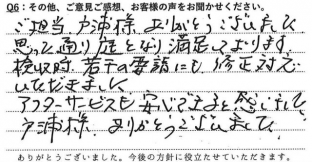 Q6：その他、ご意見ご感想、お客様の声をお聞かせください。
ご担当 戸浦様 ありがとうございまして
思った通り庭となり満足しております。
検収時 若干の要請にも 修正対応
いただきました
アフターサービスも 安心できると感じました
戸浦様 ありがとうございました
ありがとうございました。今後の方針に役立たせていただきます。